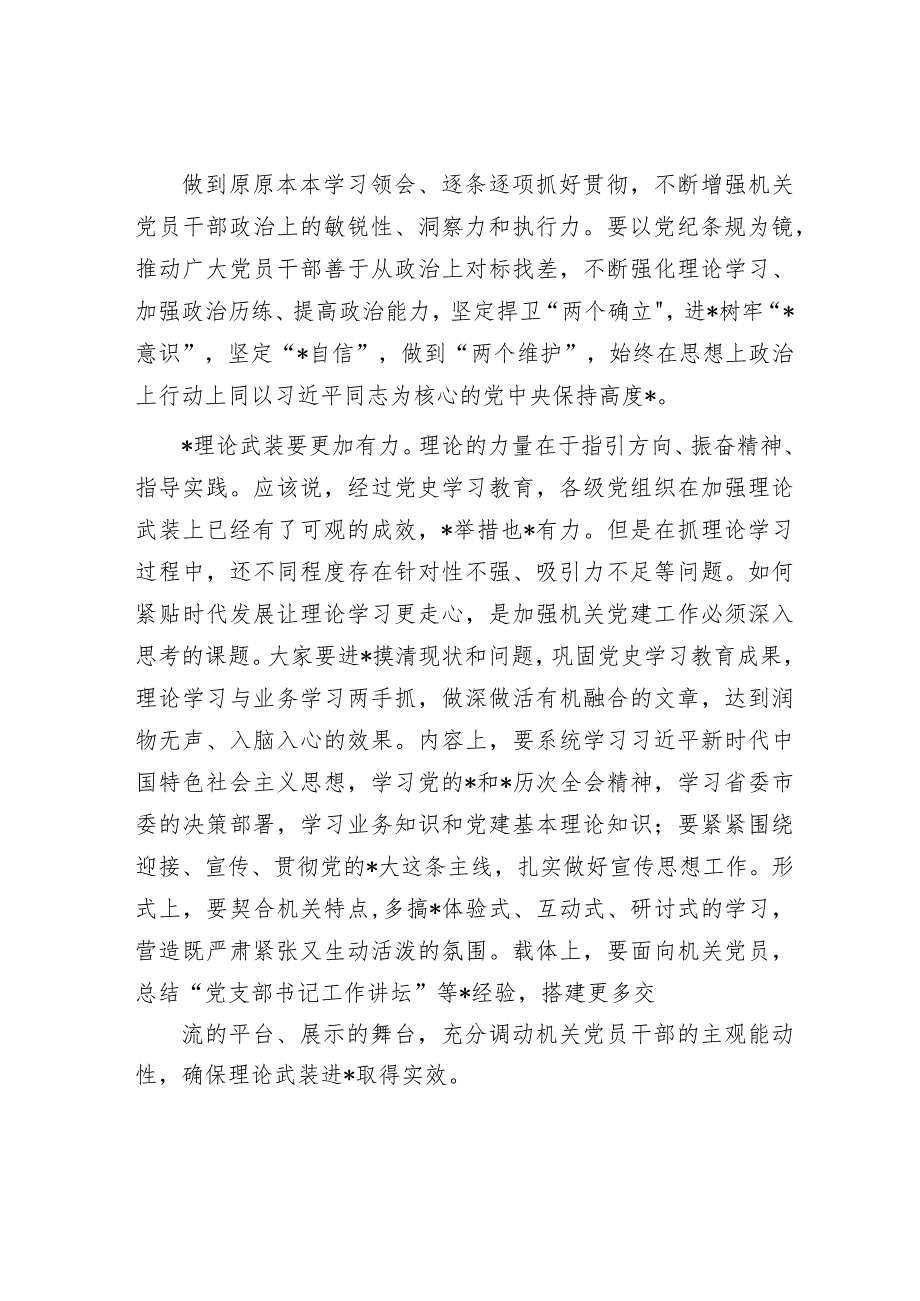 做到原原本本学习领会、逐条逐项抓好贯彻，不断增强机关
党员干部政治上的敏锐性、洞察力和执行力。要以党纪条规为镜，
推动广大党员干部善于从政治上对标找差，不断强化理论学习、
加强政治历练、提高政治能力，坚定捍卫“两个确立"，进*树牢“*
意识”，坚定“*自信”，做到“两个维护”，始终在思想上政治
上行动上同以习近平同志为核心的党中央保持高度*。
*理论武装要更加有力。理论的力量在于指引方向、振奋精神、
指导实践。应该说，经过党史学习教育，各级党组织在加强理论
武装上已经有了可观的成效，*举措也*有力。但是在抓理论学习
过程中，还不同程度存在针对性不强、吸引力不足等问题。如何
紧贴时代发展让理论学习更走心，是加强机关党建工作必须深入
思考的课题。大家要进*摸清现状和问题，巩固党史学习教育成果，
理论学习与业务学习两手抓，做深做活有机融合的文章，达到润
物无声、入脑入心的效果。内容上，要系统学习习近平新时代中
国特色社会主义思想，学习党的*和*历次全会精神，学习省委市
委的决策部署，学习业务知识和党建基本理论知识；要紧紧围绕
迎接、宣传、贯彻党的*大这条主线，扎实做好宣传思想工作。形
式上，要契合机关特点,多搞*体验式、互动式、研讨式的学习，
营造既严肃紧张又生动活泼的氛围。载体上，要面向机关党员，
总结“党支部书记工作讲坛”等*经验，搭建更多交
流的平台、展示的舞台，充分调动机关党员干部的主观能动
性，确保理论武装进*取得实效。